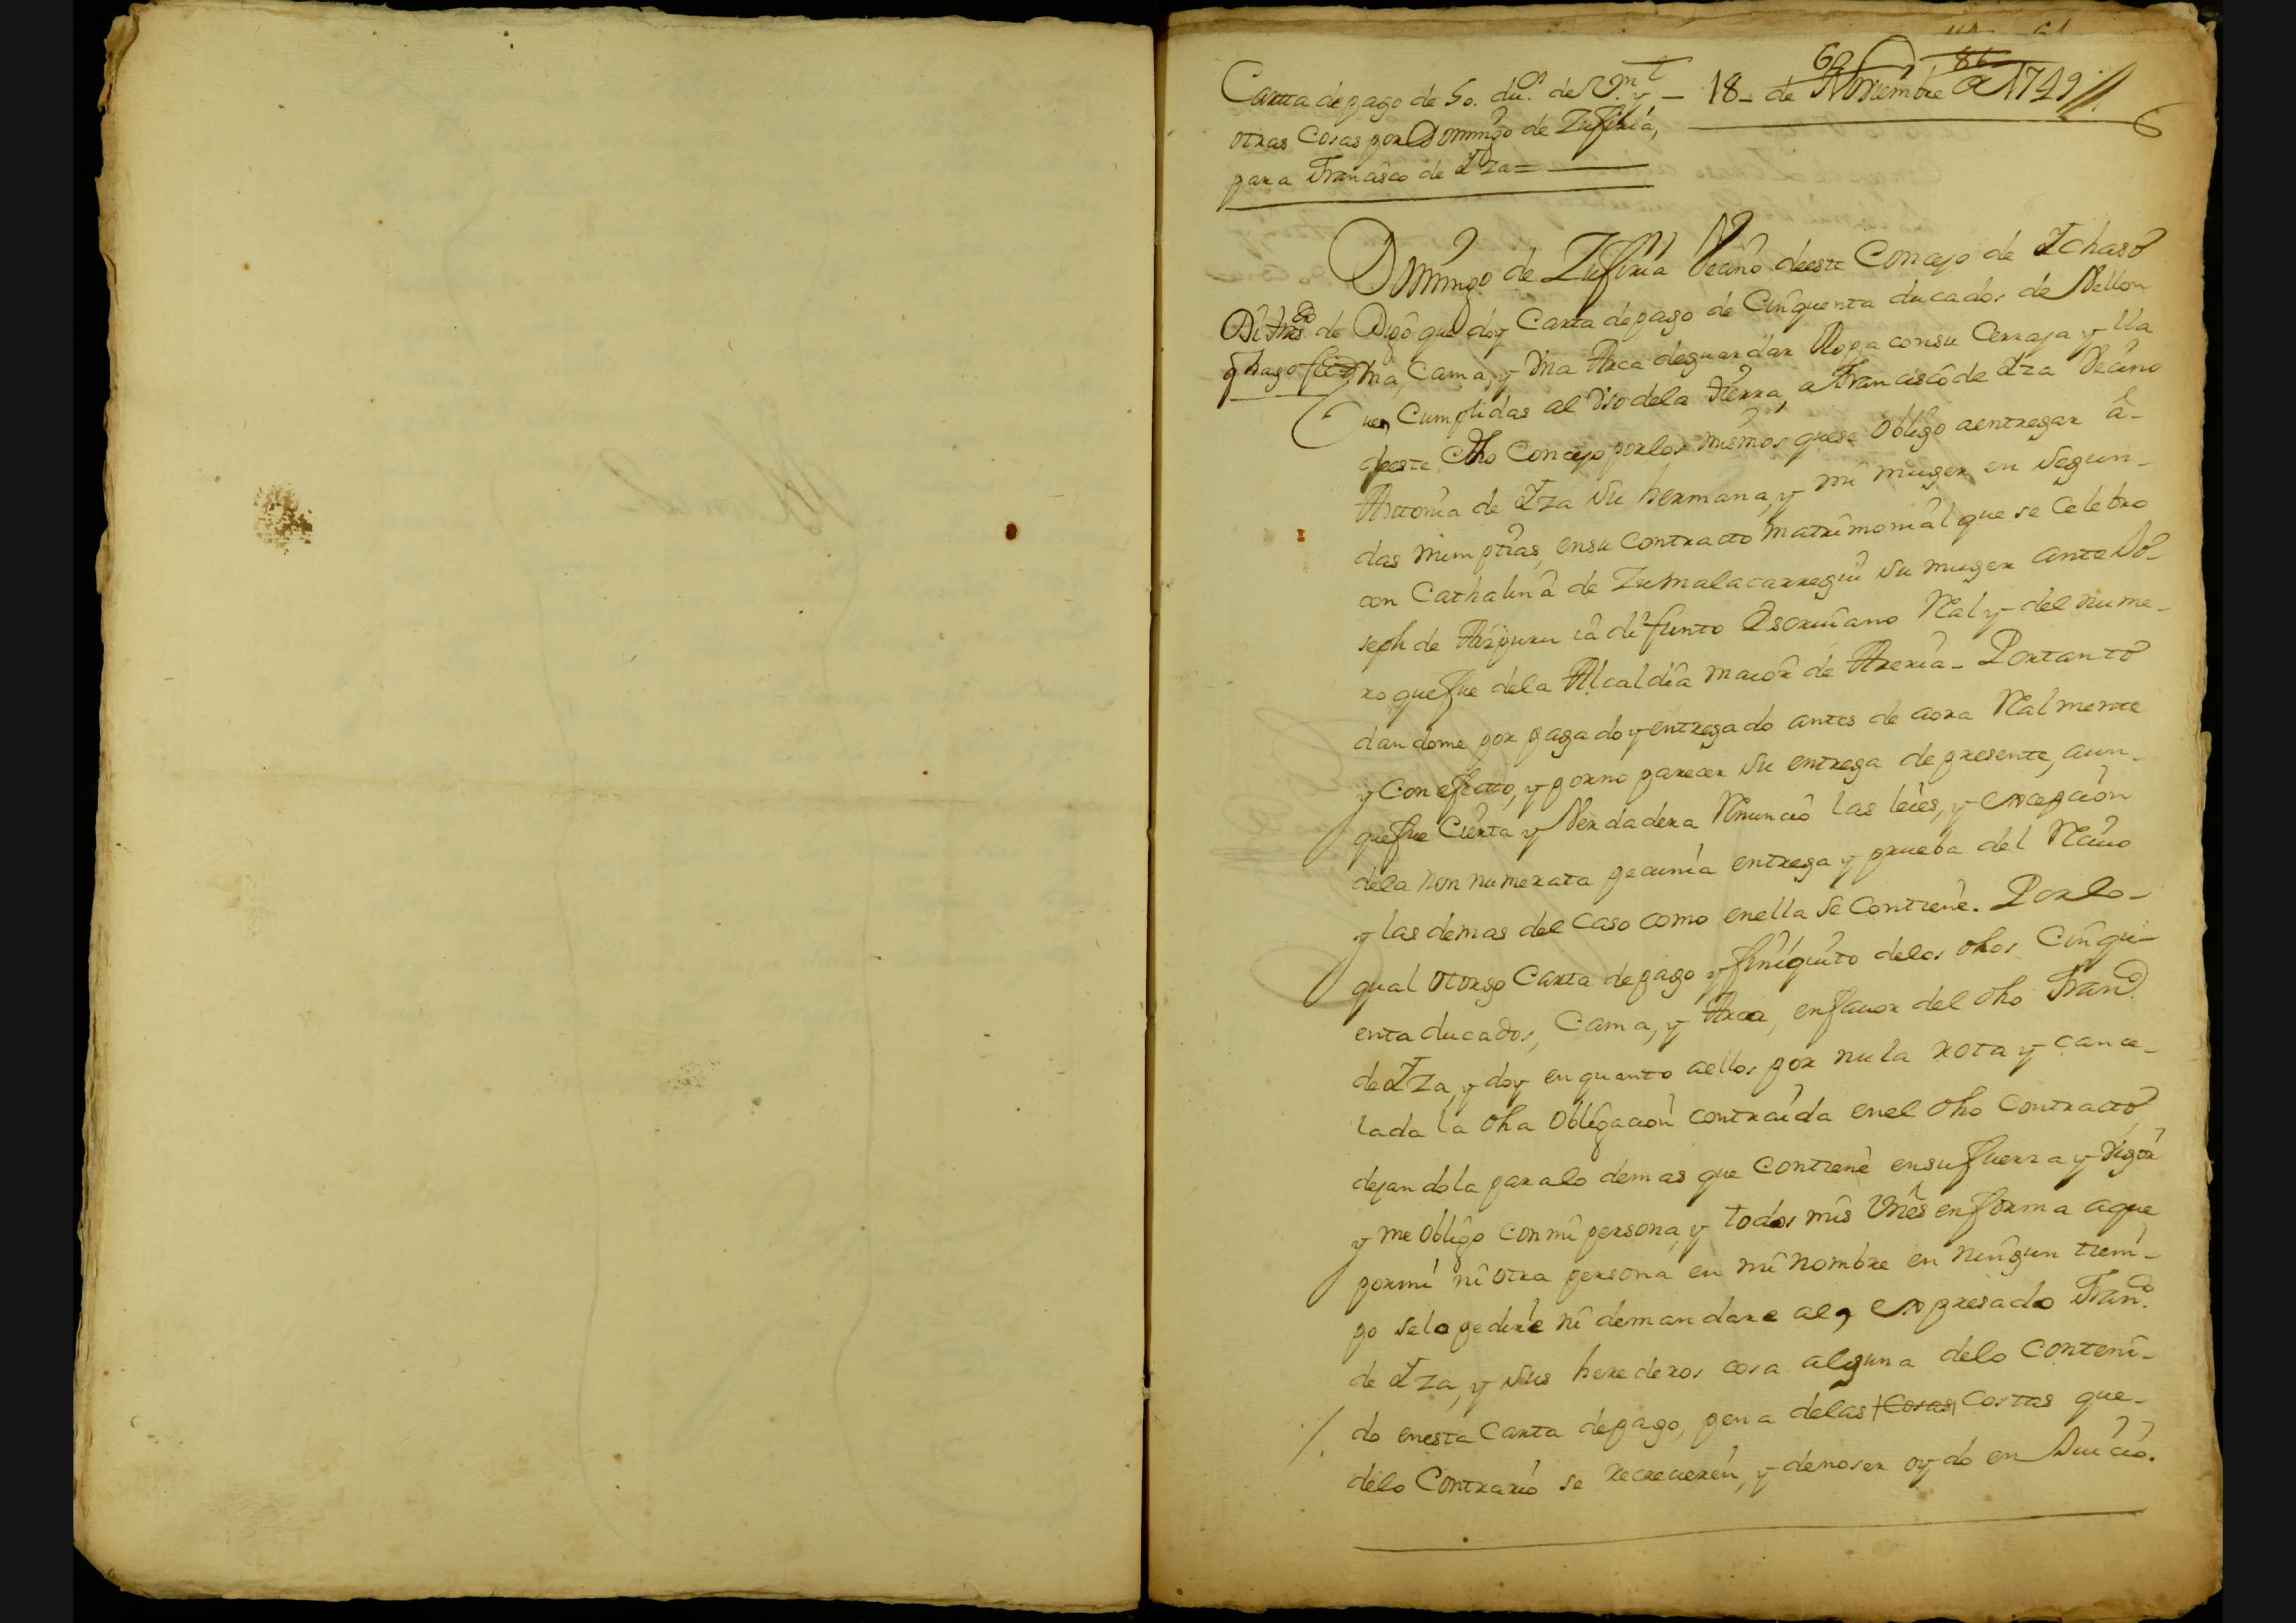 60 86
Carta de pago de 50. du.s de V.n y — 18- de Noviembre de 1749
otras Cosas por Domingo de Zufiria,
para Francisco de Iza=
Domingo de Zufiria Vecino deeste Concejo de Ichaso
Digo que doy Carta depago de Cinquenta ducados de Vellon
Vna, Cama, y Vna Arca deguardar Ropa consu Cerraja y lla
ue, Cumplidas al Vso dela tierra, a Francisco de Iza Vecino
deeste dho Concejo porlos mismos quese obligo aentregar â-
Antonia de Iza su hermana, y mi muger en segun-
das numptias, ensu Contracto matrimonial que se Celebro
con Cathalina de Zumalacarregui su muger ante Jo-
seph de Aizpuru ia difunto Escriuano Real y del nume-
ro quefue dela Alcaldia maior de Areria- Portanto
dandome por pagado y entregado antes de aora Realmente
y Conefecto, y porno parecer su entrega depresente, aun-
quefue Cierta y Verdadera Renuncio las leies, y excepcion
dela non numerata pecunia entrega y prueba del Reciuo
y las demas del Caso como enella se Contiene. Porlo-
qual otorgo Carta depago y finiquito delos dhos Cinqu-
enta ducados, Cama, y Arca, enfauor del dho Fran.co
de Iza, y doy enquanto aellos por nula rota y cance-
lada la dha obligacion contraida enel dho Contracto
dejandola paralo demas que Contiene ensufuerza y vigor
y me obligo conmi persona, y todos mis Vnes enforma aque
pormi ni otra persona en mi nombre en ningun tiem-
po selo pedire ni demandare al, expresado Fran.co
de Iza, y sus herederos cosa alguna delo Conteni-
do enesta Carta depago, pena delas Cosas Costas que-
delo Contrario se recrecieren, y denoser oydo en Juicio.